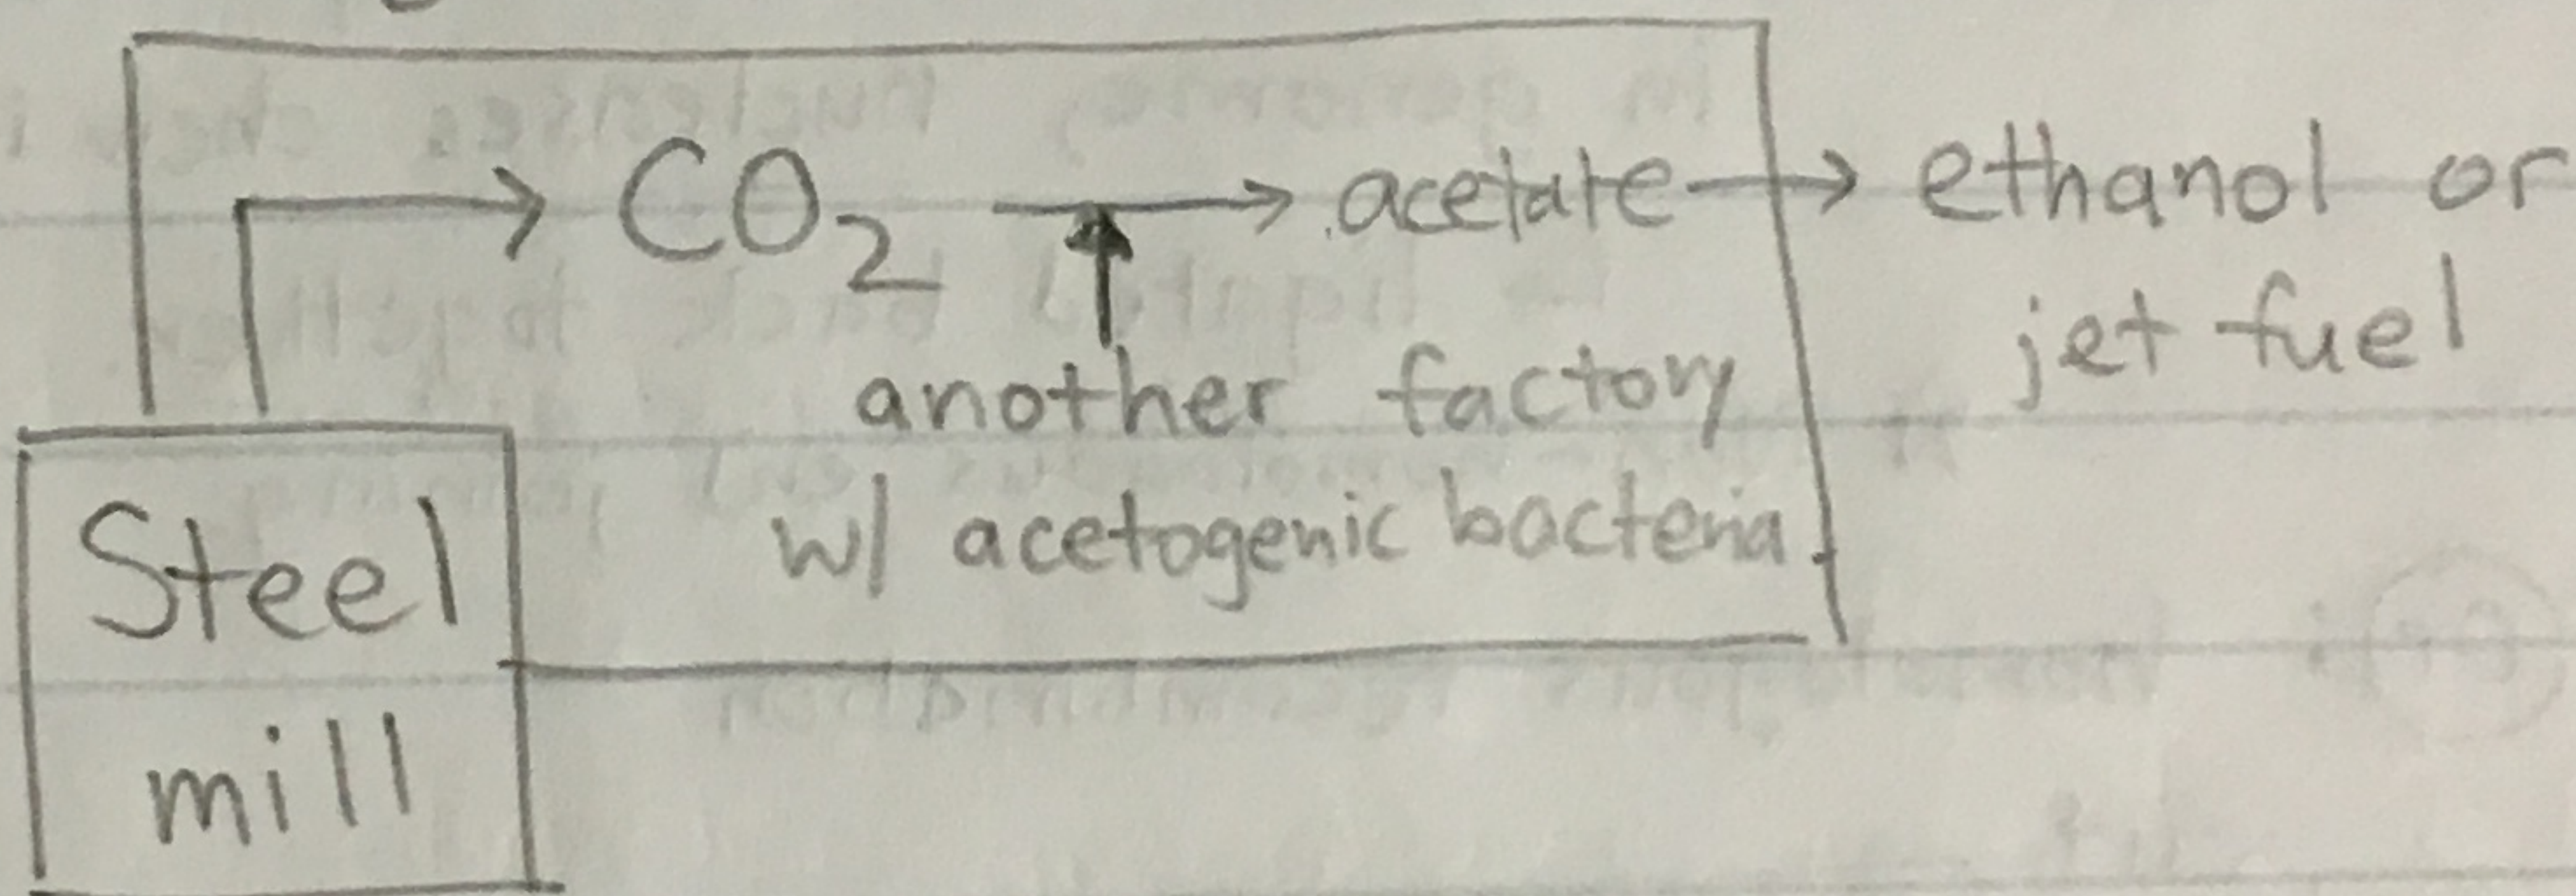 CO₂ → acetate → ethanol or
jet fuel
another factory
w/ acetogenic bacteria
Steel
mill